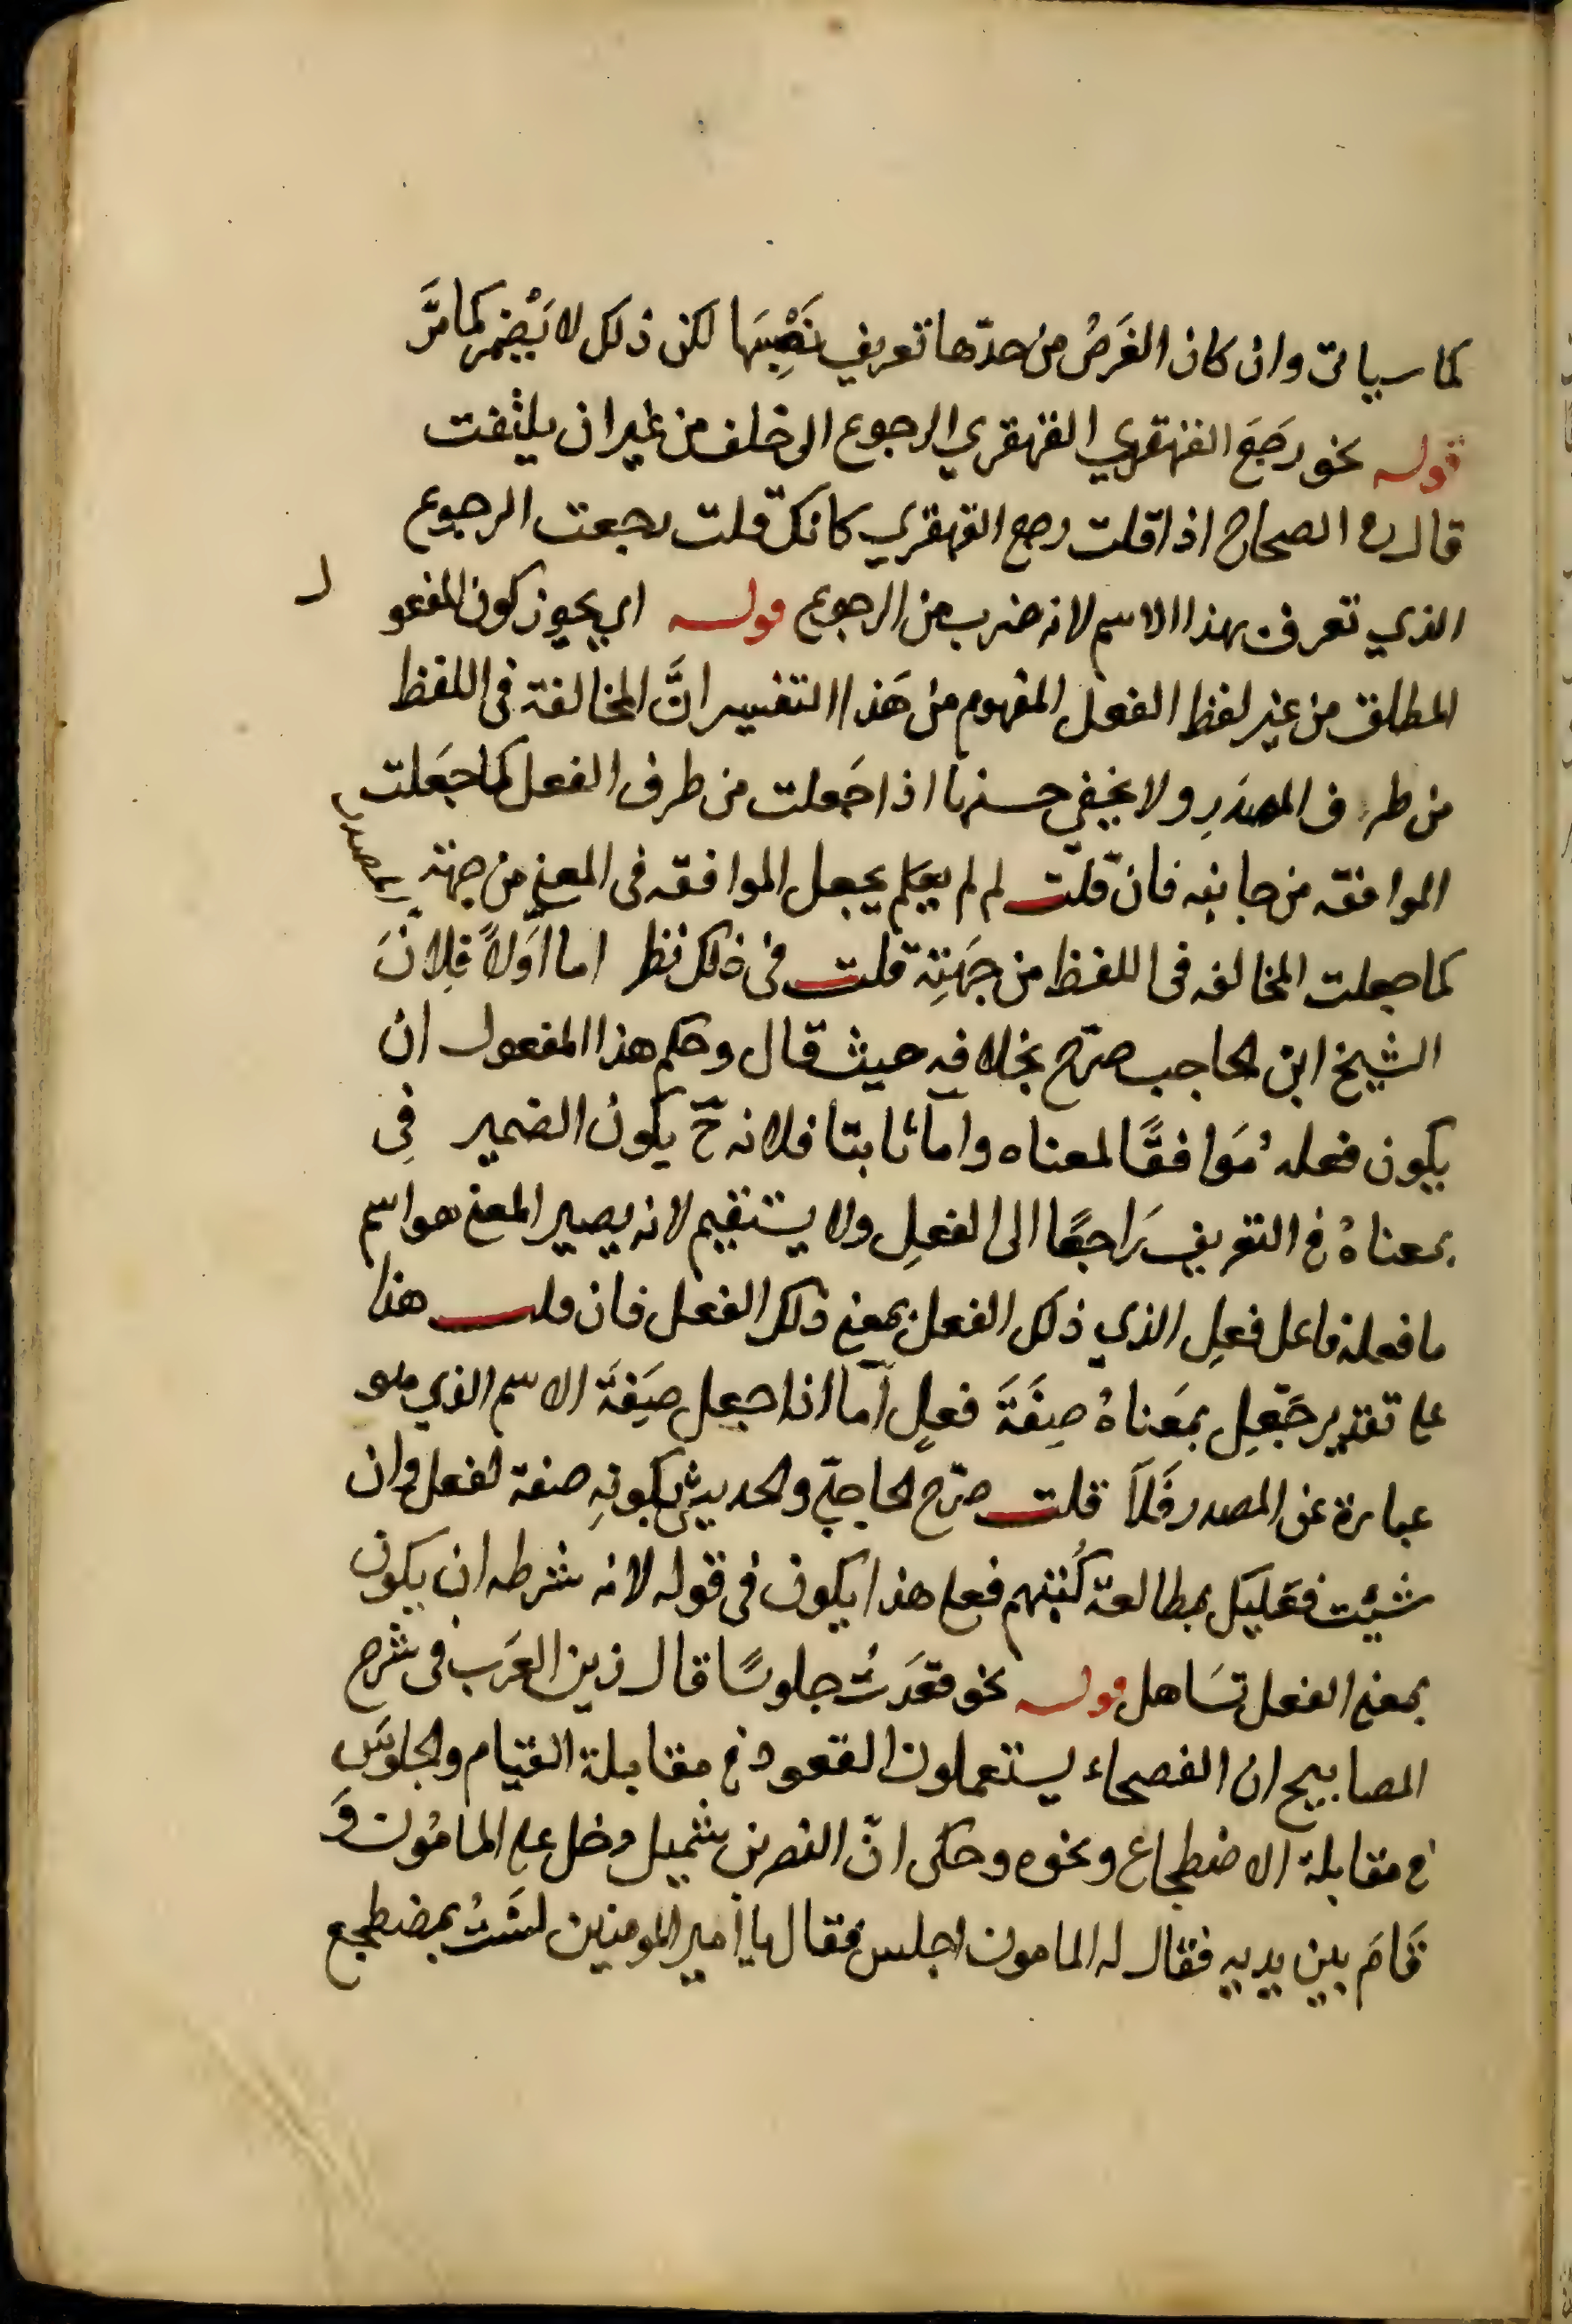 كما سياتى وان كان الغَرَضُ من حدّها تعريف نَصْبِهَا لكن ذلك لا يَضُر كما مَرَّ
قوله نحو رَجَعَ القهقري القهقري الرجوع الى خلف من غير ان يلتفت
قال فى الصحاح اذا قلت رجع القهقري كانك قلت رجعت الرجوع
الذي تعرف بهذا الاسم لانه ضرب من الرجوع قوله اي يجوز كون المفعو ل
المطلق من غير لفظ الفعل المفهوم من هَذا التفسير انَّ المخالفة فى اللفظ
من طرف المصدَرِ ولا يخفي حسنها اذا جَعلت من طرف الفعل كما جَعَلت
الموافقه من جانبه فان قلت لم لم يجعل الموافقه فى المعنى من جهته المصدر
كما جعلت المخالفه فى اللفظ من جِهَتِهِ قلت فى ذلك نظر اما اَوّلاً فلِانَّ
الشيخ ابن الحاجب صرّح بخلافه حيث قال وحكم هذا المفعول ان
يكون فعله مُوَافقًا لمعناه وامّا ثابتا فلانه حّ يكون الضمير فِى
بمعناهُ فى التعريف رَاجعًا الى الفعلِ ولا يستقيم لانه يصير المعنى هو اسم
ما فعله فاعل فعلِ الذي ذلك الفعل بمعنى ذلك الفعل فان قلت هذا
على تقدير جَعْلِ بمَعناهُ صِفَةَ فعلٍ امّا اذا جعل صِفَةَ الاسم الذي هو
عبارة عن المصدر فَلاَ قلت صرّح الحاجبىّ والحديثى بكونهِ صفة لفعل وان
شيئت فعَليَك بمطالعة كُتبهم فعلى هذا يكون فى قوله لانه شرطه ان يكون
بمعنى الفعل تسَاهل قوله نحو قعَدتُ جلوسًا قال زين العَرَب فى شرح
المصابيح ان الفصحاء يستعملون القعود فى مقابلة القيام والجلوسَ
فى مقابلة الاضطجاع ونحوه وحكى انّ النصر بن شميل دخل على المامُون وَ
قَامَ بين يديه فقال له المامون اجلس فقال يا أمير المومنين لسْتُ بمضطجع